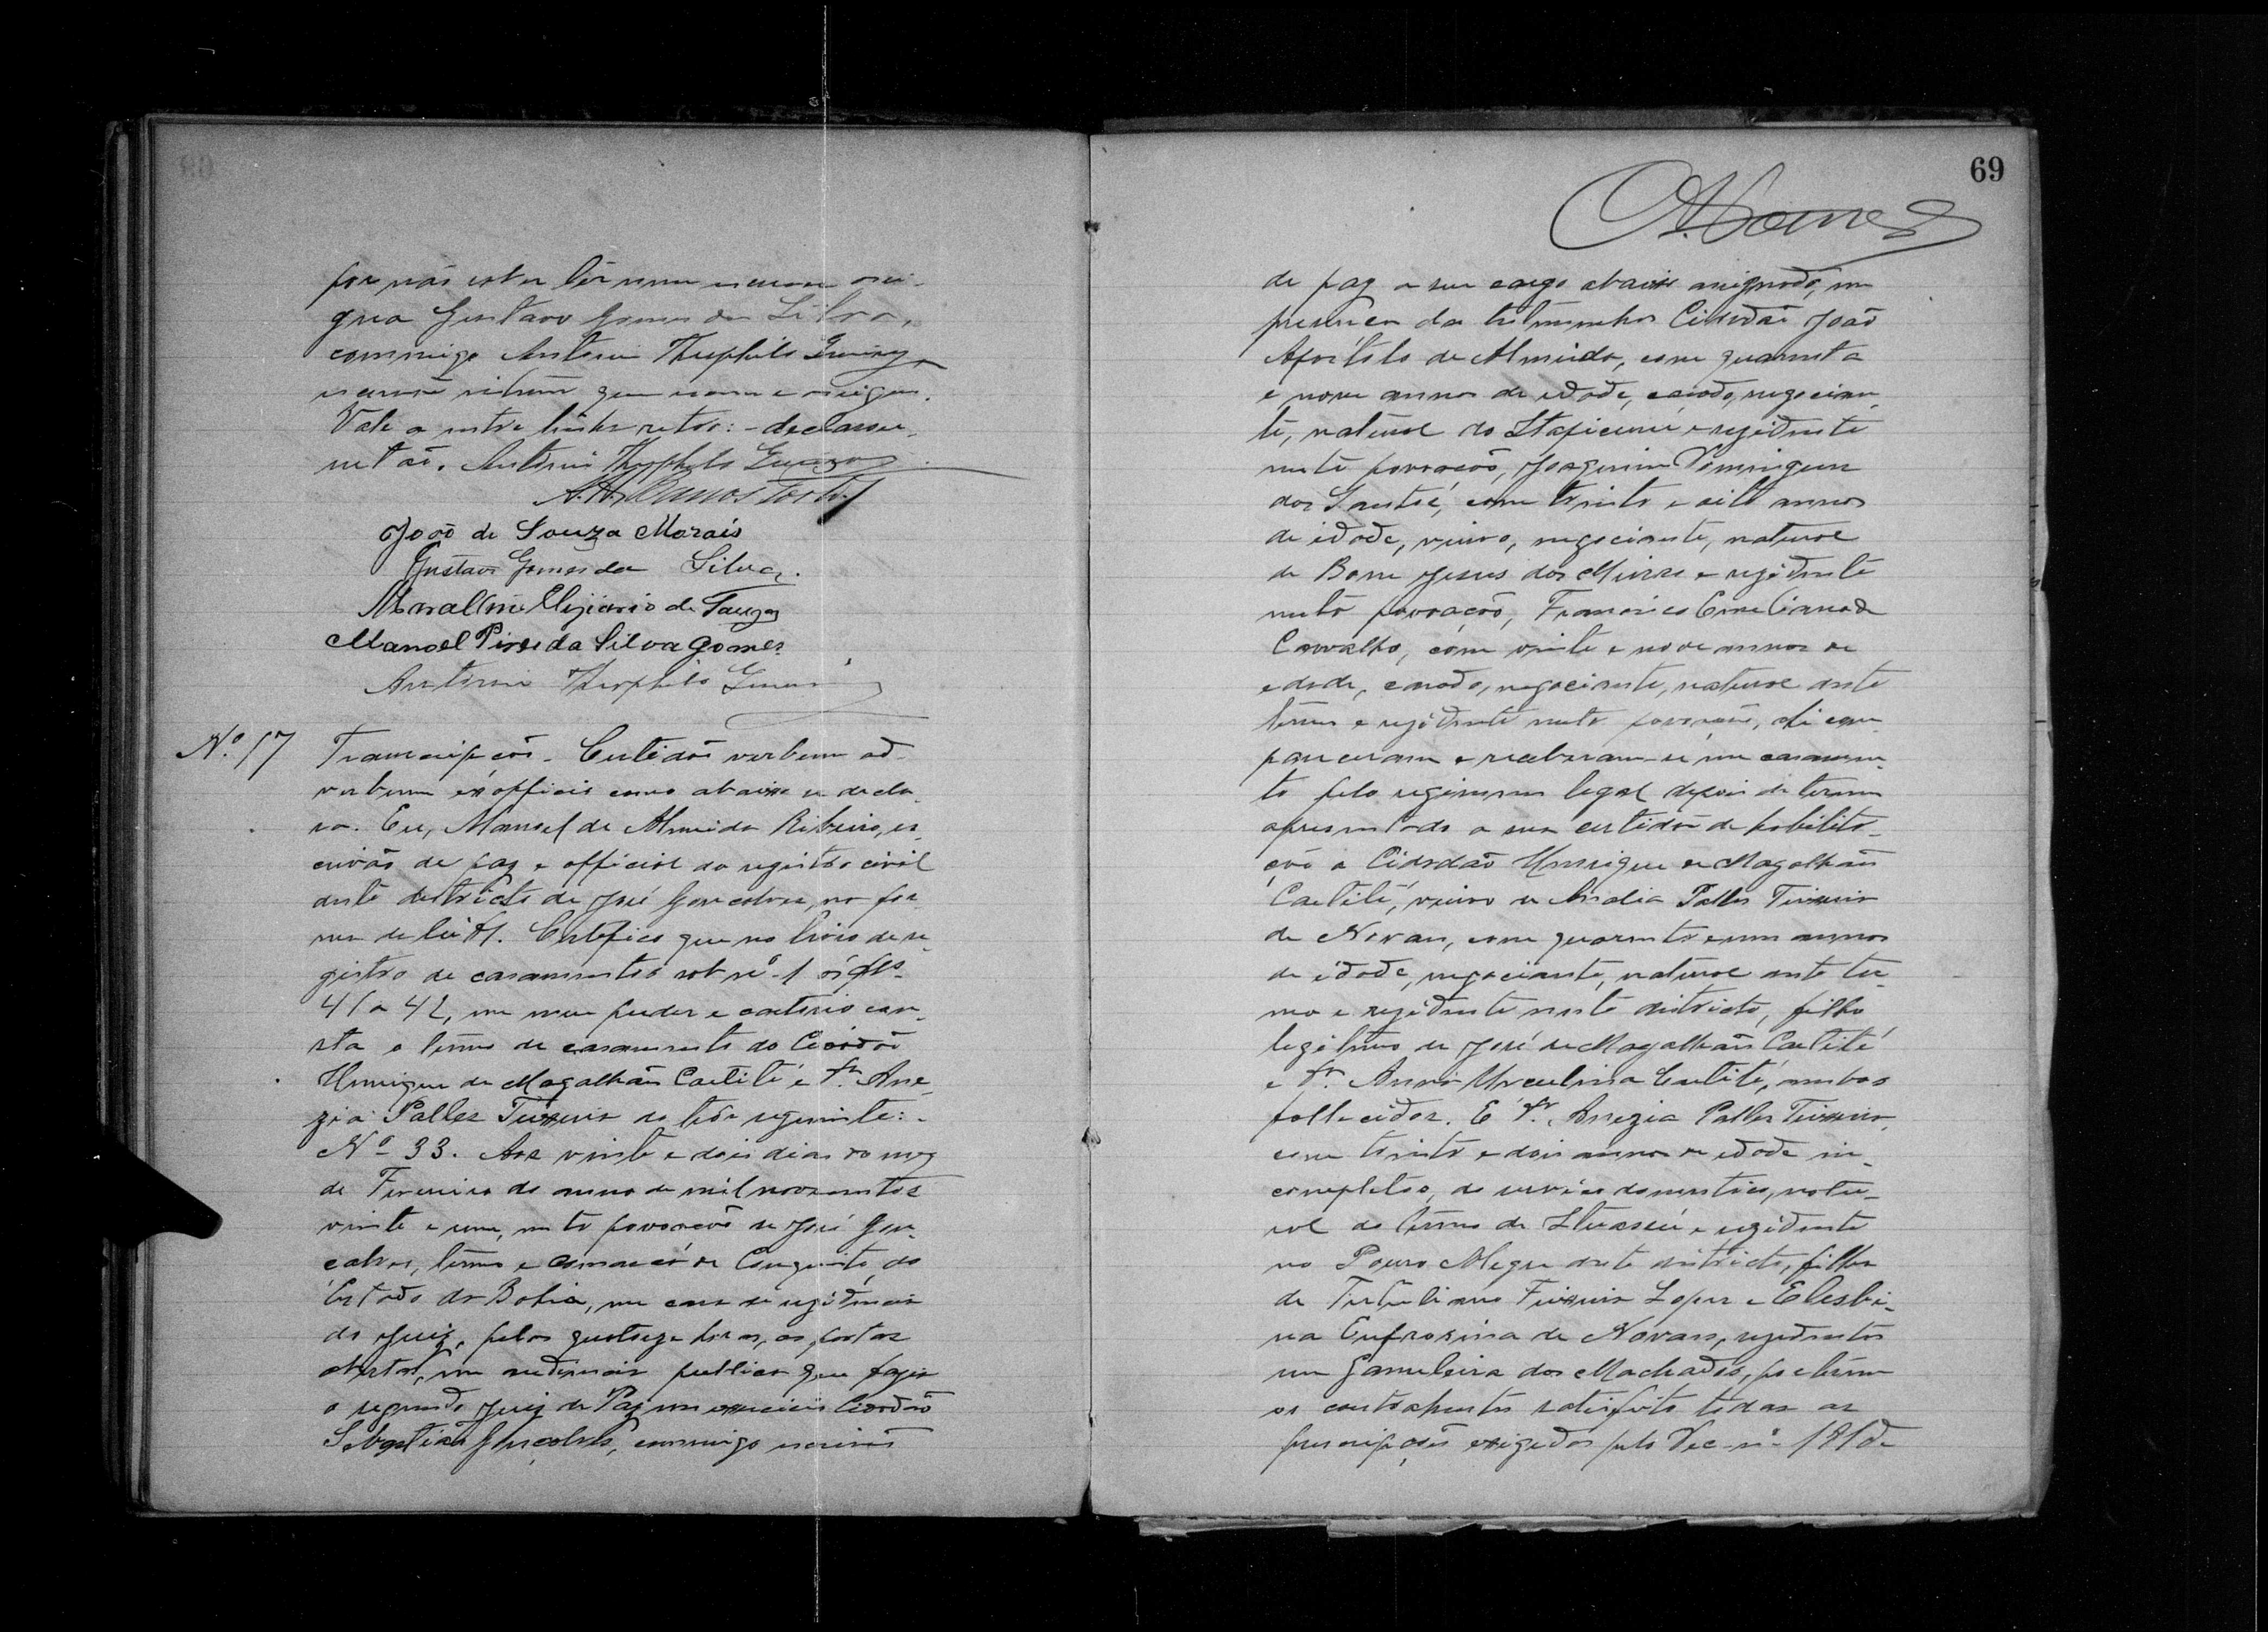 por não saber lêr nem escrever assi-
gna Gustavo Gomes da Silva,
commigo Antonio Theophilo
escrivão interino que escrevi e assigno.
Vale a entre linha retro: - declaran-
Antonio Theophilo
A. H. Ramos
João de Souza Morais
Gustavo Gomes da Silva.
de Souza
Manoel Pires da Silva Gomes
Antonio Theophilo
69
Nº 17 Transcripção. Certidão verbum ad
verbum ex officio como abaixo se decla-
ra. Eu, Manoel de Almeida Ribeiro, es-
crivão de paz e official do registro civil
deste districto de José Gonçalves, na for-
ma da lei etc. Certifico que no livro de re-
gistro de casamentos sob nº 1 ás fls.
41 a 42, em meu poder e cartorio con-
sta o termo de casamento do Cidadão
Henrique de Magalhães Caetité e Dª. Ane-
zia Palles Teixeira do teôr seguinte: -
Nº 33. Aos vinte e dois dias do mez
de Fevereiro do anno de mil novecentos
vinte e um, nesta povoação de José Gon-
çalves, termo e comarca de Conquista, do
Estado da Bahia, em casa de residencia
do Juiz, pelas quatorze horas, as portas
abertas, em audiencia publica que fazia
o segundo Juiz de Paz em exercicio Cidadão
Sebastião Gonçalves, commigo escrivão
de paz a seu cargo abaixo assignado, em
presença das testemunhas Cidadão João
Apostolo de Almeida, com quarenta
e nove annos de idade, casado, negocian-
te, natural do Itapicurú e residente
nesta povoação, Joaquim Domingues
dos Santos, com trinta e oito annos
de idade, viuvo, negociante, natural
de Bom Jesus dos Meiras e residente
nesta povoação, Francisco Emeliano de
Carvalho, com vinte e nove annos de
edade, casado, negociante, natural deste
termo e residente nesta povoação, ahi com-
pareceram e receberam-se em casamen-
to pelo regimem legal depois de terem
apresentado a sua certidão de habilita-
ção o Cidadão Henrique de Magalhães
Caetité, viuvo de Analia Palles Teixeira
de Novaes, com quarenta e um annos
de idade, negociante, natural deste ter-
mo e residente neste districto, filho
legitimo de José de Magalhães Caetité
e Dª. Anna Herculina Caetité, ambos
fallecidos. E Dª. Anezia Palles Teixeira,
com trinta e dois annos de idade in-
completos, de serviço domestico, natu-
ral do termo de Ituassú e residente
no Pouso Alegre deste districto, filha
de Tertuliano Teixeira Lopes e Elesbi-
na Eufrosina de Novaes, residentes
em Gamelleira dos Machados, po
os contrahentes satisfeito todas as
prescripções exigidas pelo Dec. nº 181 de